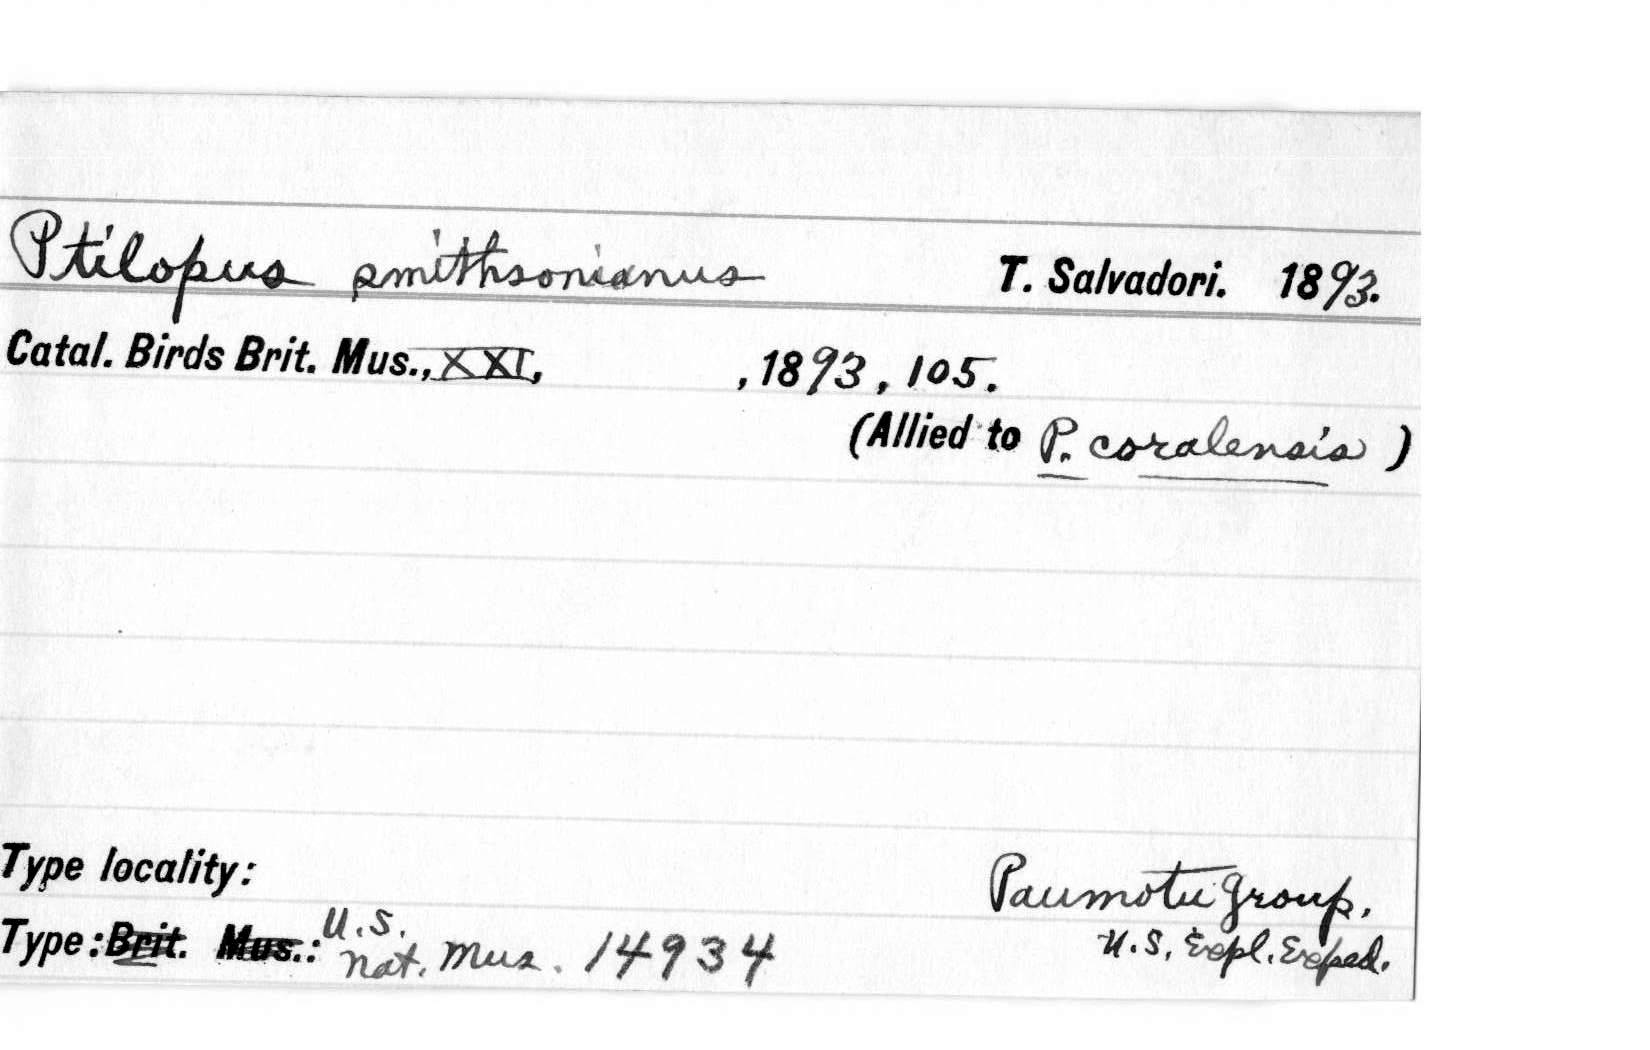 Ptilopus smithsonianus T. Salvadori. 1893.
Catal. Birds Brit. Mus., XXI, , 1893, 105.
(Allied to P. coralensis )
Type locality: Paumotu Group.
Type: Brit. Mus.: U.S. Nat. Mus. 14934 U.S. Expl. Exped.